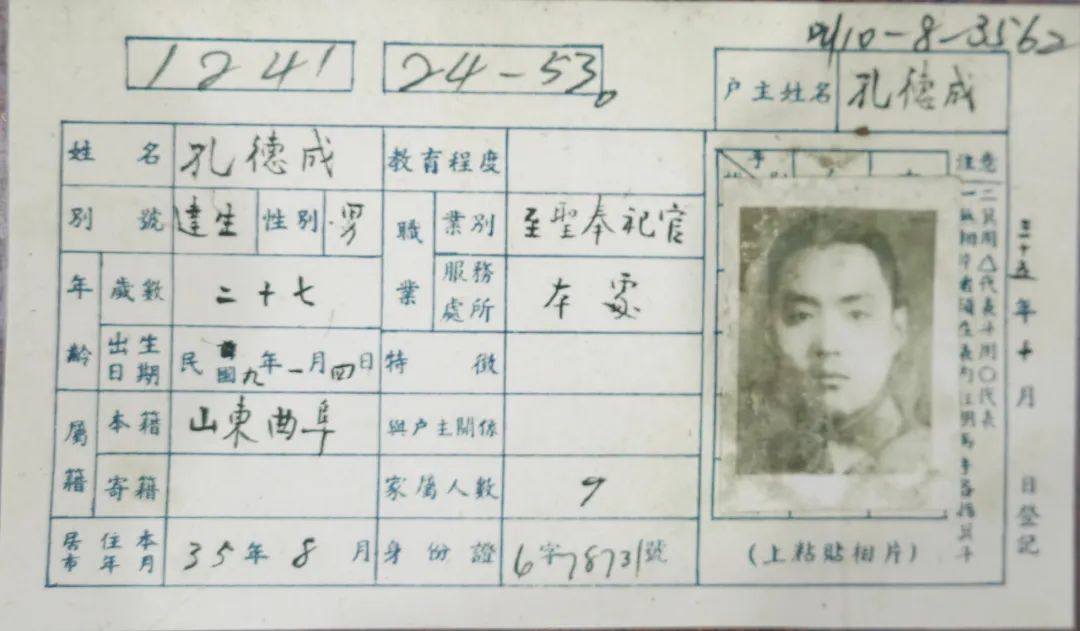 1241
24-53
10-8-3562
户主姓名 孔德成
姓名 孔德成 教育程度
別號 達生 性別 男 職業 業別 至聖奉祀官
年齡 歲數 二十七 服務處所 本處
出生日期 民國九年一月四日 特徵
屬籍 本籍 山東曲阜 與户主關係
寄籍 家屬人數 9
居住本市年月 35年8月 身份證 6字78731號
(上粘貼相片)
注意
二箕用△代表斗用○代表
三十五年十月 日登記